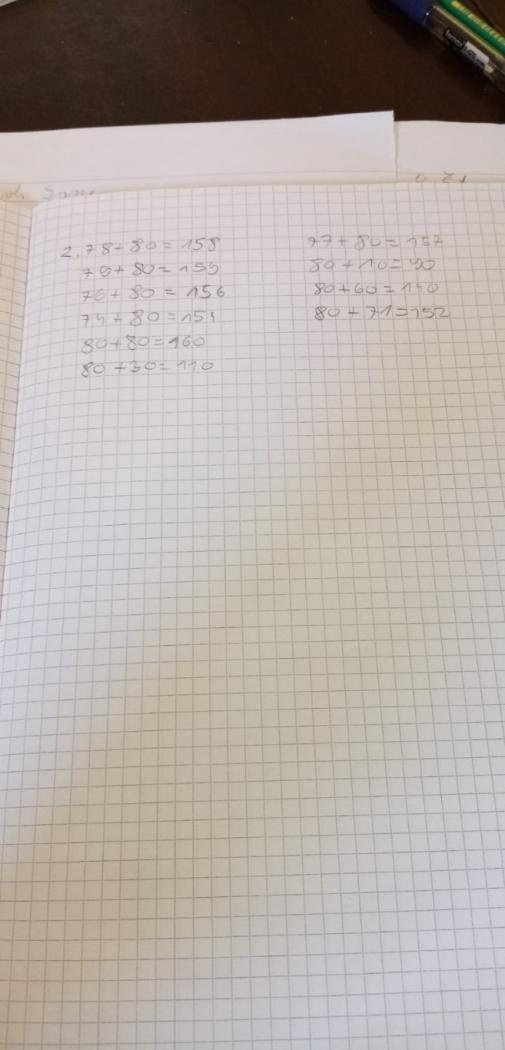 2. 78+80=158
79+80=159
76+80=156
74+80=154
80+80=160
80+30=110
77+80=157
80+10=90
80+60=140
80+71=152